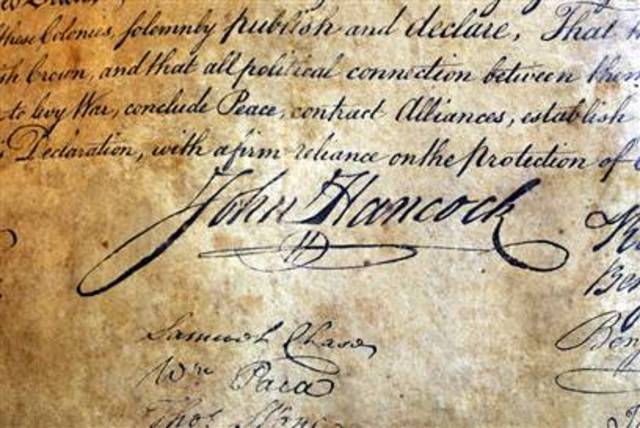 these Colonies, solemnly publish and declare, That
sh Crown, and that all political connection between them
to levy War, conclude Peace, contract Alliances, establish
Declaration, with a firm reliance on the Protection of
John Hancock
Samuel Chase
Wm Paca
Thos Stone
Ben